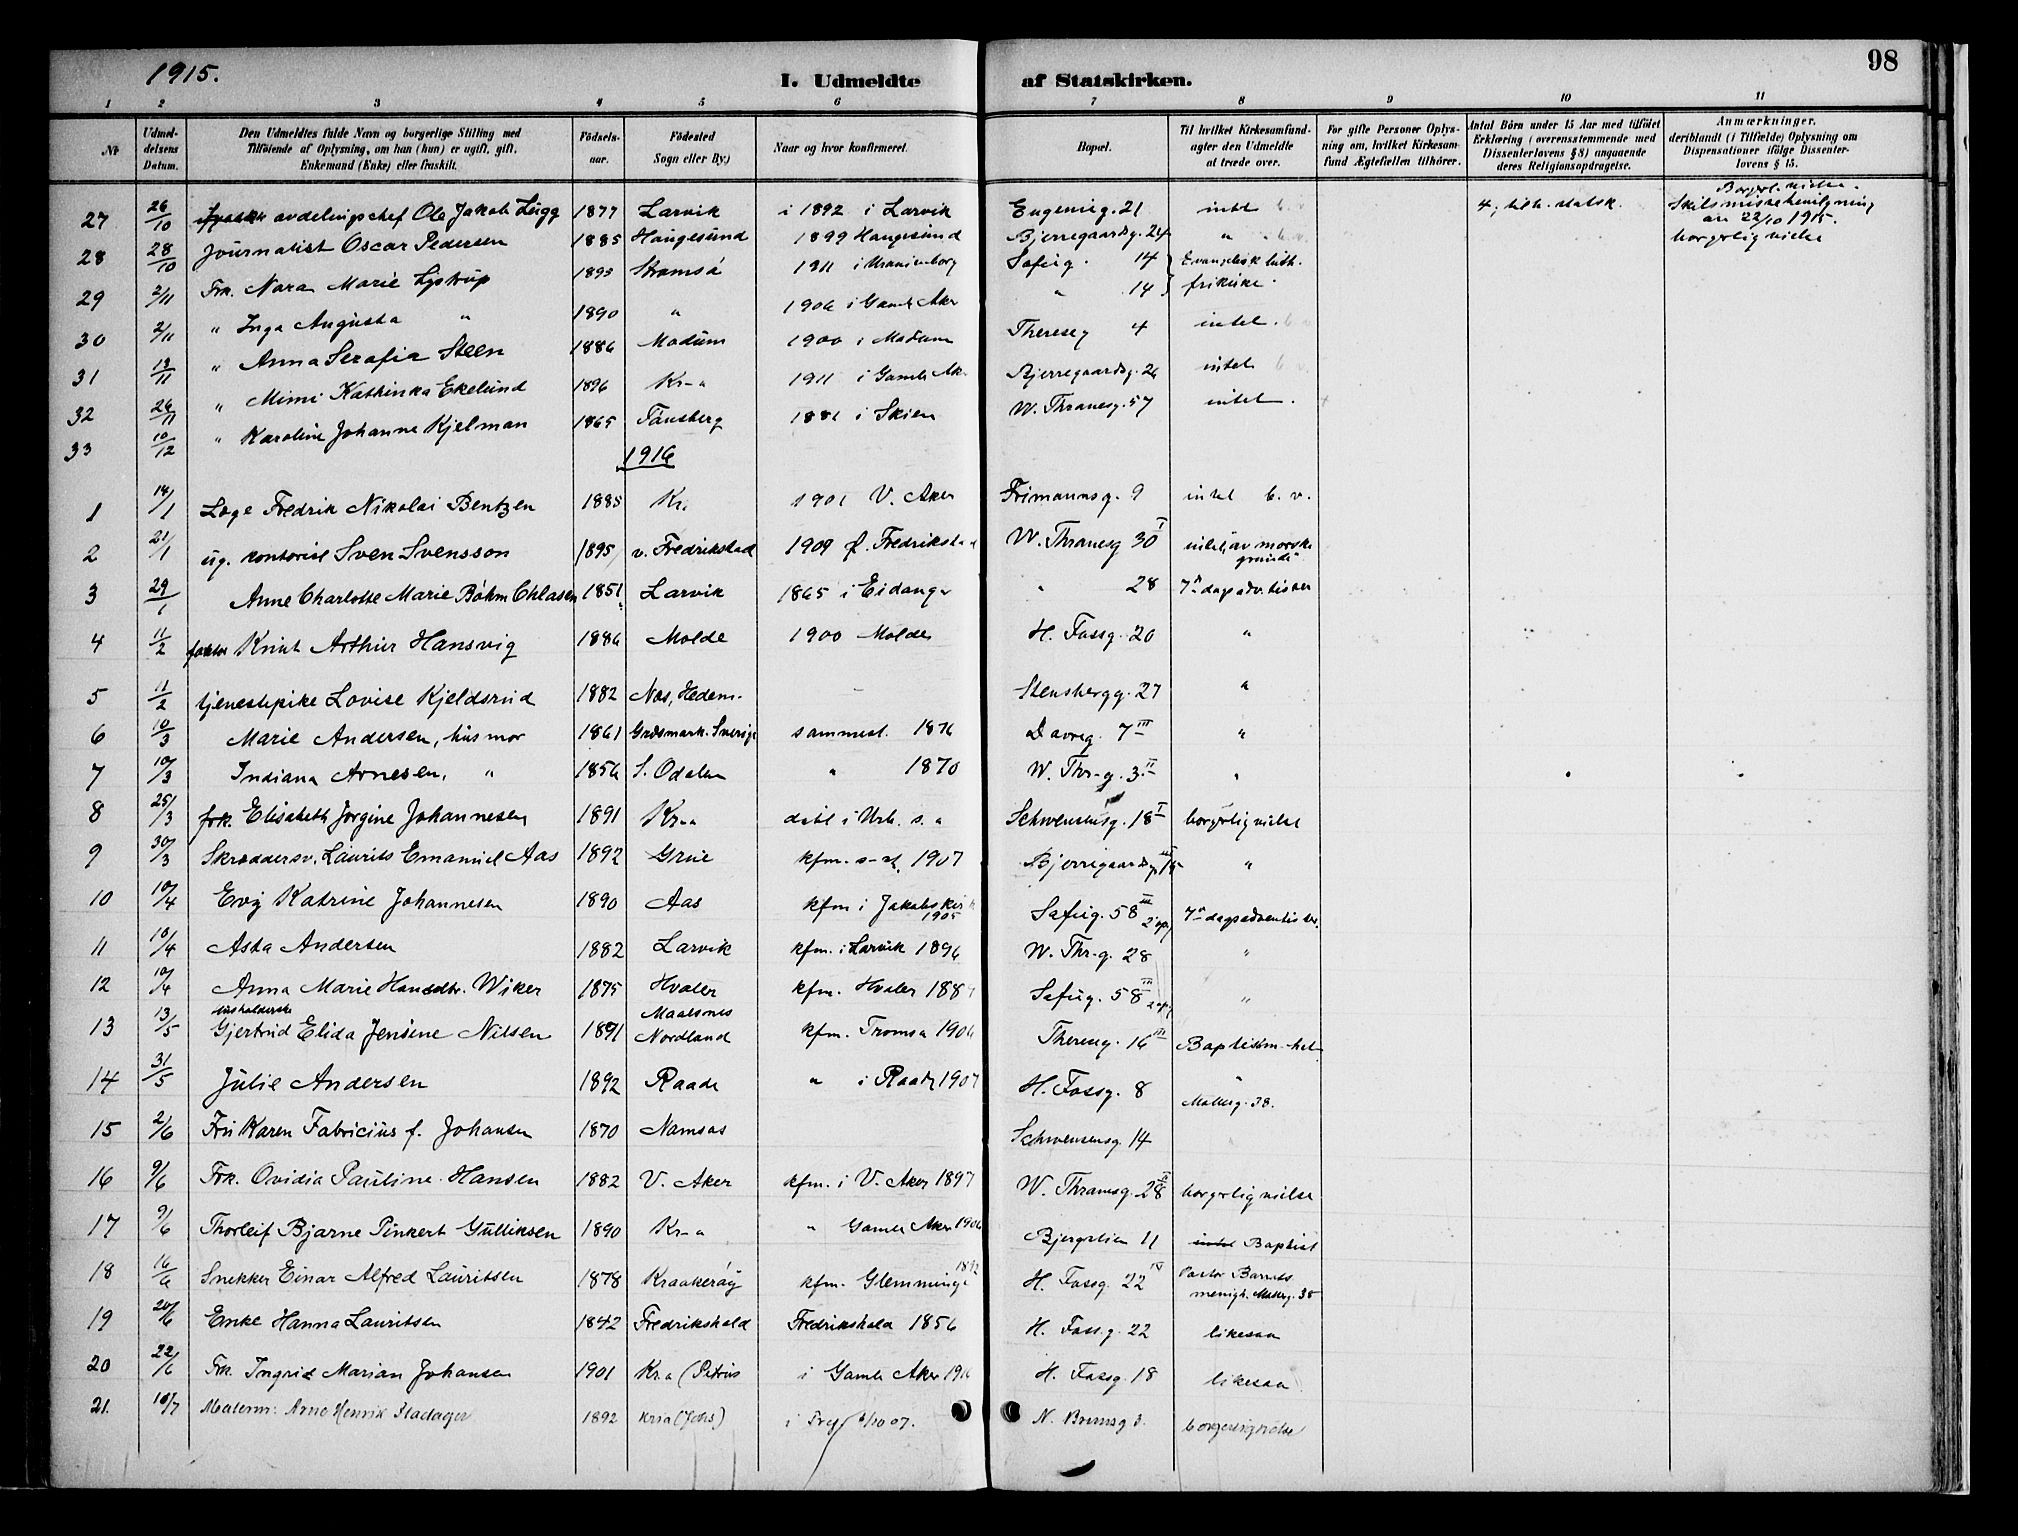 1915.
I. Udmeldte af Statskirken.
98
1 2 3 4 5 6 7 8 9 10 11
Nr.
Udmeldelsens Datum.
Den Udmeldtes fulde Navn og borgerlige Stilling med
Tilföiende af Oplysning, om han (hun) er ugift, gift,
Enkemand (Enke) eller fraskilt.
Födselsaar.
Födested
Sogn eller By.)
Naar og hvor konfirmeret.
Bopæl.
Til hvilket Kirkesamfund
agter den Udmeldte
at træde over.
For gifte Personer Oplysning om, hvilket Kirkesamfund Ægtefællen tilhörer.
Antal Börn under 15 Aar med tilföiet
Erklæring (overensstemmende med
Dissenterlovens § 8) angaaende
deres Religionsopdragelse.
Anmærkninger,
deriblandt (i Tilfælde) Oplysning om
Dispensationer ifölge Dissenterlovens § 15.
27 26/10 avdelingschef Ole Jakob Lügg 1877 Larvik i 1892 i Larvik Eugenieg. 21 intet b. v. 4, tilh. statsk. Borgerl. vielse. Skilsmissebevilgning av 22/10 1915.
28 28/10 Journalist Oscar Pedersen 1885 Haugesund 1899 Haugesund Bjerregaardsg. " b. v. borgerlig vielse
29 2/11 Frk. Nora Marie Lystrup 1895 Strømsö 1911 i Uranienborg Sofieg. 14 Evangelisk luth.
30 2/11 " Inga Augusta " 1890 " 1906 i Gamle Aker " 14 frikirke.
31 13/11 " Anna Serafia Steen 1886 Modum 1900 i Modum Thereseg 4 intet. b. v.
32 26/11 " Mimi Kathinka Ekelund 1896 Kr-a 1911 i Gamle Ak. Bjerregaardsg. 26 intet b. v.
33 10/12 " Karoline Johanne Kjelman 1865 Tönsberg 1881 i Skien W. Thranesg. 57 intet.
1916
1 14/1 Loge Fredrik Nikolai Bentzen 1885 Kr. 1901 V. Aker Frimannsg. 9 intet b. v.
2 21/1 ug. kontorist Sven Svensson 1895 v. Fredrikstad 1909 Fredrikstad W. Thranesg 30 I intet, av norske grunde
3 29/1 Anne Charlotte Marie Böhm Chlasen 1851 Larvik 1865 i Eidanger " 28 7n dags adventister
4 11/2 Knut Arthur Hansvig 1886 Molde 1900 Molde H. Fossg. 20 "
5 11/2 tjenestepike Lovise Kjeldsrud 1882 Nes, Hedem. - Stensbergg. 27 "
6 10/3 Marie Andersen, husmor 1861 Gräsmark. Sverige sammest. 1876 Dovreg. 7 III "
7 10/3 Indiana Arnesen, " 1856 S. Odalen " 1870 W. Thr-g. 3. II "
8 25/3 frk. Elisabeth Jørgine Johannesen 1891 Kr-a döbt i Urb. s. a Schwensensg. 18 I borgerlig vielse
9 30/3 Skræddersv. Laurits Emanuel Aas 1892 Grue kfm. s-st. 1907 Bjerregaardsg. "
10 10/4 Evy Katrine Johannesen 1890 Aas kfm i Jakobs kirk 1905 Sofieg. 58 III 2 opg 7n dagsadventister.
11 10/4 Asta Andersen 1882 Larvik kfm. i Larvik 1896 W. Thr-g. 28 "
12 10/4 Anna Marie Hansdtr. Wiker 1875 Hvaler kfm. Hvaler 1889 Sofieg. 58 III 2 opg "
13 13/5 husholderske Gjertrud Elida Jensine Nilsen 1891 Maalsnes Nordland kfm. Tromsø 1906 Thereseg. 16 III Baptism-het
14 31/5 Julie Andersen 1892 Raade " i Raade 1907 H. Fossg. 8 " Möllerg. 38.
15 2/6 Fru Karen Fabricius f. Johansen 1870 Namsos Schwensensg. 14
16 9/6 Frk. Ovidia Pauline Hansen 1882 V. Aker kfm. i V. Aker 1897 W. Thranesg. 28 borgerlig vielse
17 9/6 Thorleif Bjarne Pinkert Gulliksen 1890 Kr-a " Gamle Aker 1906 Bjergslien 11 intet Baptist
18 16/6 Snekker Einar Alfred Lauritsen 1878 Kraakeröy kfm. Glemminge 1892 H. Fossg. 22 IV Pastor Barratts menigh. Möllerg. 38
19 20/6 Enke Hanna Lauritsen 1842 Fredrikshald Fredrikshald 1856 H. Fossg. 22 likesaa
20 22/6 Frk. Ingrid Marian Johansen 1901 Kr.a (Petrus i Gamle Aker 1916 H. Fossg. 18 likesaa
21. 10/7 Malerm. Arne Henrik Stadager 1892 Kria (Johs) i Tref 6/10 07. N. Brunsg 3. borgerligvielse